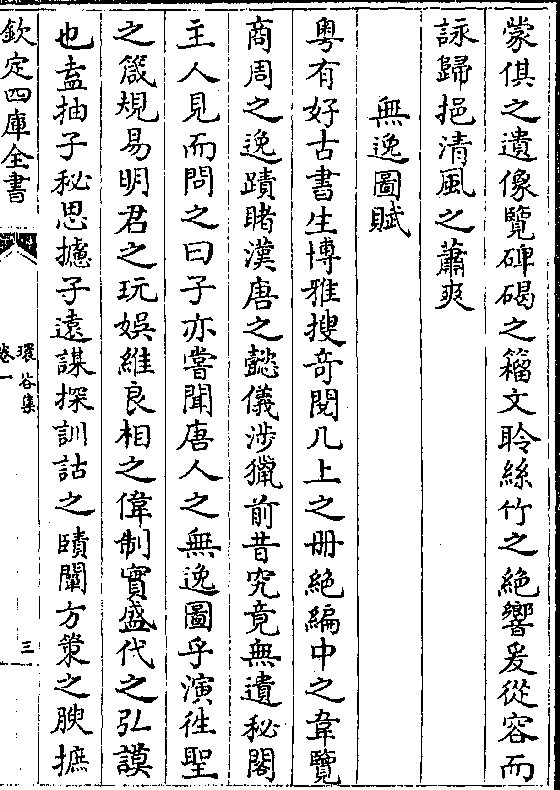 蒙倛之遺像覽碑碣之籀文聆絲竹之絶響爰從容而
詠歸挹清風之蕭爽
無逸圖賦
粤有好古書生博雅搜奇閱几上之册絶編中之韋覽
商周之逸蹟睹漢唐之懿儀涉獵前昔究竟無遺秘閣
主人見而問之曰子亦嘗聞唐人之無逸圖乎演徃聖
之箴規易明君之玩娛維良相之偉制實盛代之弘謨
也盍抽子秘思攄子遠謀探訓詁之賾闡方䇿之腴摭
欽定四庫全書
環谷集
卷一
三